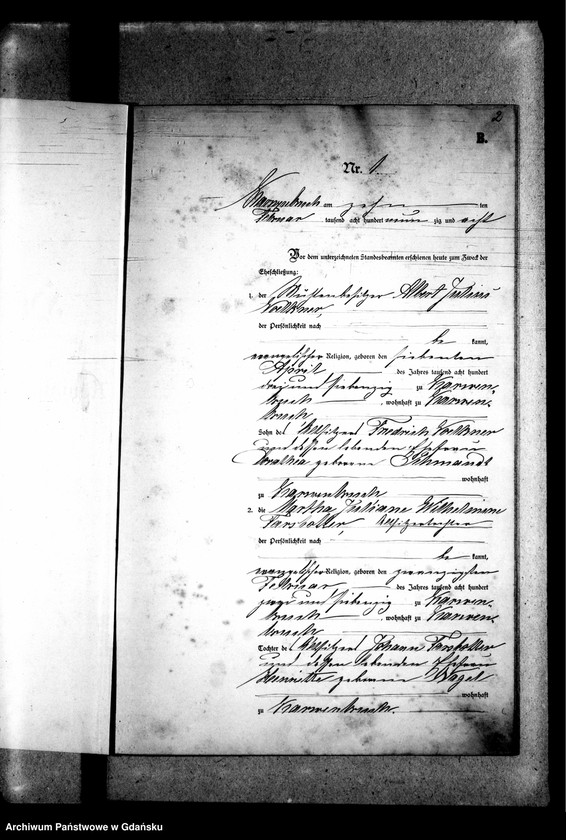 2
B.
Nr. 1.
Karwenbruch am zehn ten
Februar tausend acht hundert neun zig und acht
Vor dem unterzeichneten Standesbeamten erschienen heute zum Zweck der
Eheschließung:
1. der Albert Julius
Voelkner,
der Persönlichkeit nach
be kannt,
evangelischer Religion, geboren den siebenten
April des Jahres tausend acht hundert
drei und siebenzig zu Karwen-
bruch, wohnhaft zu Karwen-
bruch
Sohn des Altsitzers Friedrich Voelkner
und dessen lebenden Ehefrau
Dorothea geborene Schmandt
wohnhaft
zu Karwenbruch
2. die Martha Juliane Wilhelmine
Altsitzertochter
der Persönlichkeit nach
be kannt,
evangelischer Religion, geboren den zwanzigsten
Februar des Jahres tausend acht hundert
und siebenzig zu Karwen-
bruch, wohnhaft zu Karwen-
bruch
Tochter des Altsitzers Johann
und dessen lebenden Ehefrau
Henriette geborene
wohnhaft
zu Karwenbruch.
Archiwum Państwowe w Gdańsku